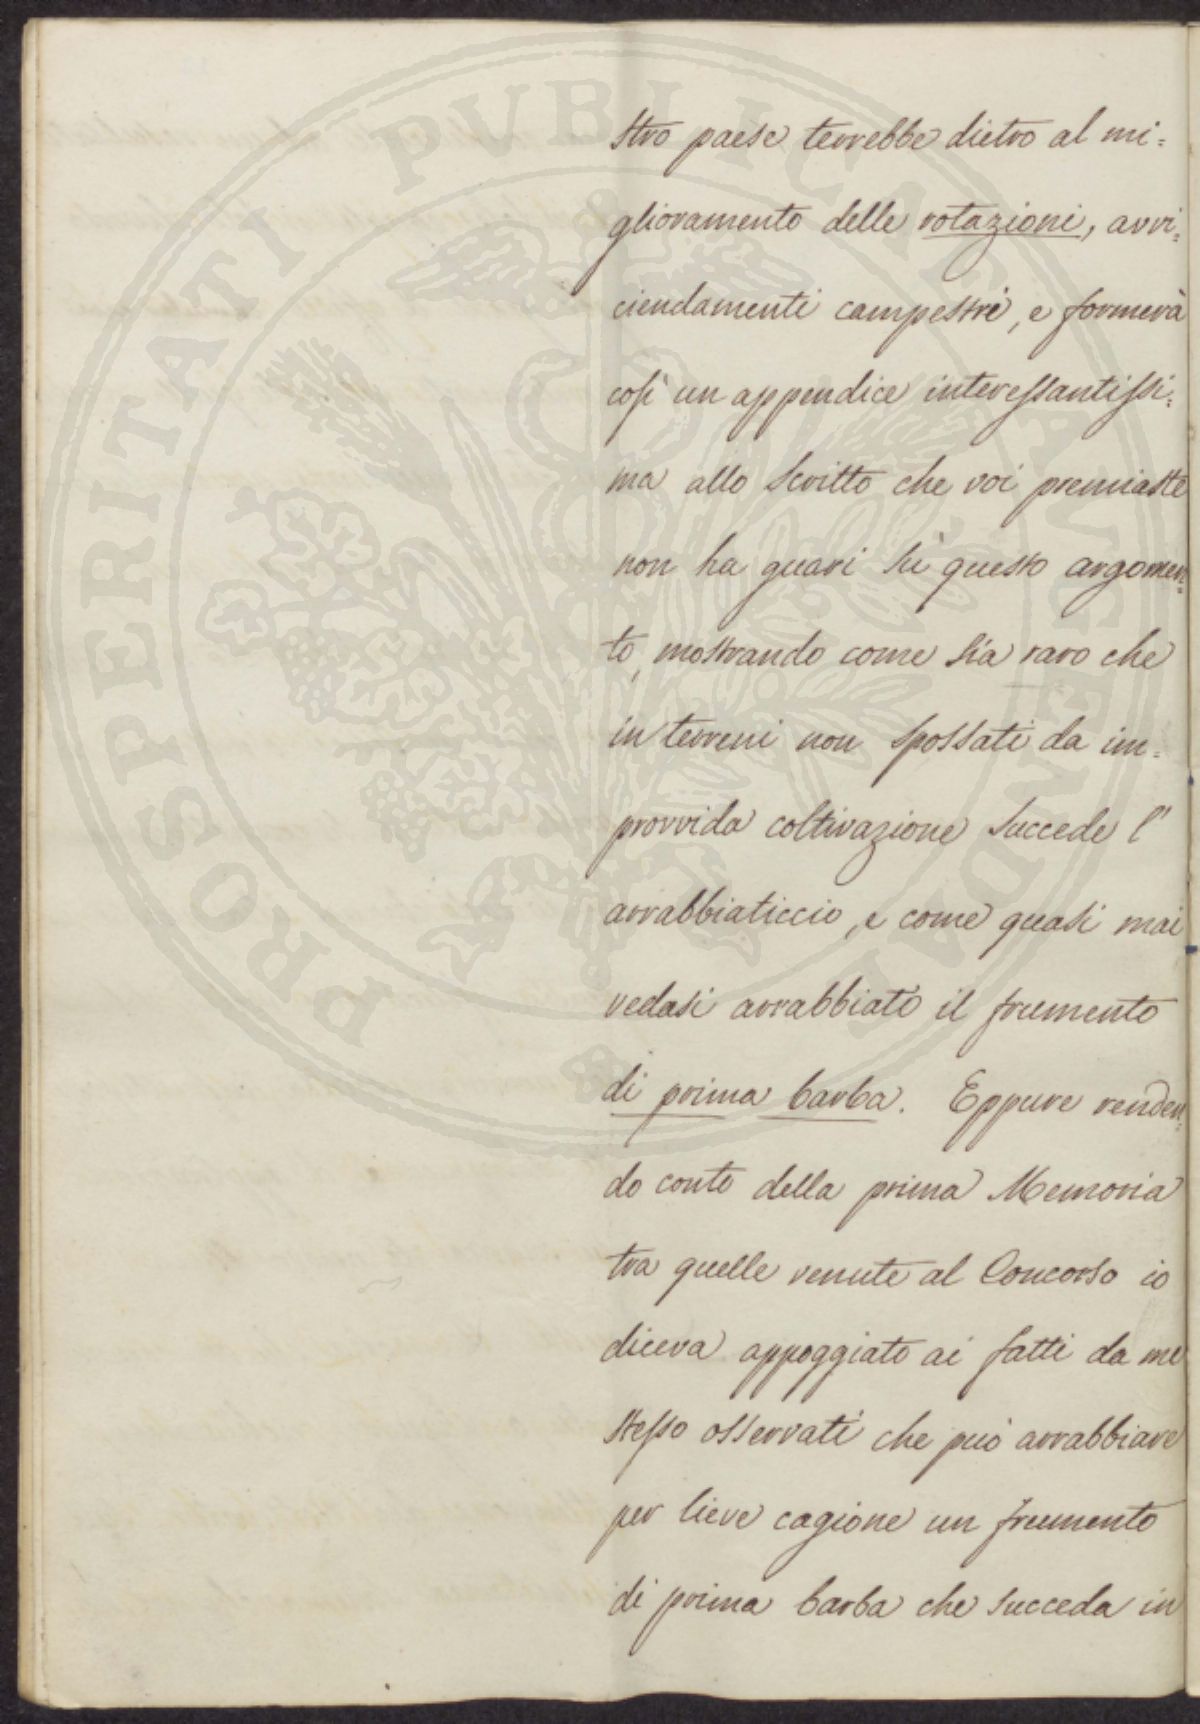 stro paese terrebbe dietro al mi=
glioramento delle rotazioni, avvi=
ciendamenti campestri, e formerà
così un appendice interessantissi=
ma allo Scritto che voi premiaste
non ha guari sù questo argomen=
to, mostrando come sia raro che
in terreni non spossati da im=
provvida coltivazione succede l'
arrabbiaticcio, e come quasi mai
vedasi arrabbiato il frumento
di prima barba. Eppure renden=
do conto della prima Memoria
tra quelle venute al Concorso io
diceva appoggiato ai fatti da me
stesso osservati che può arrabbiare
per lieve cagione un frumento
di prima barba che succeda in
PROSPERITATI PUBLICAE AUGENDAE